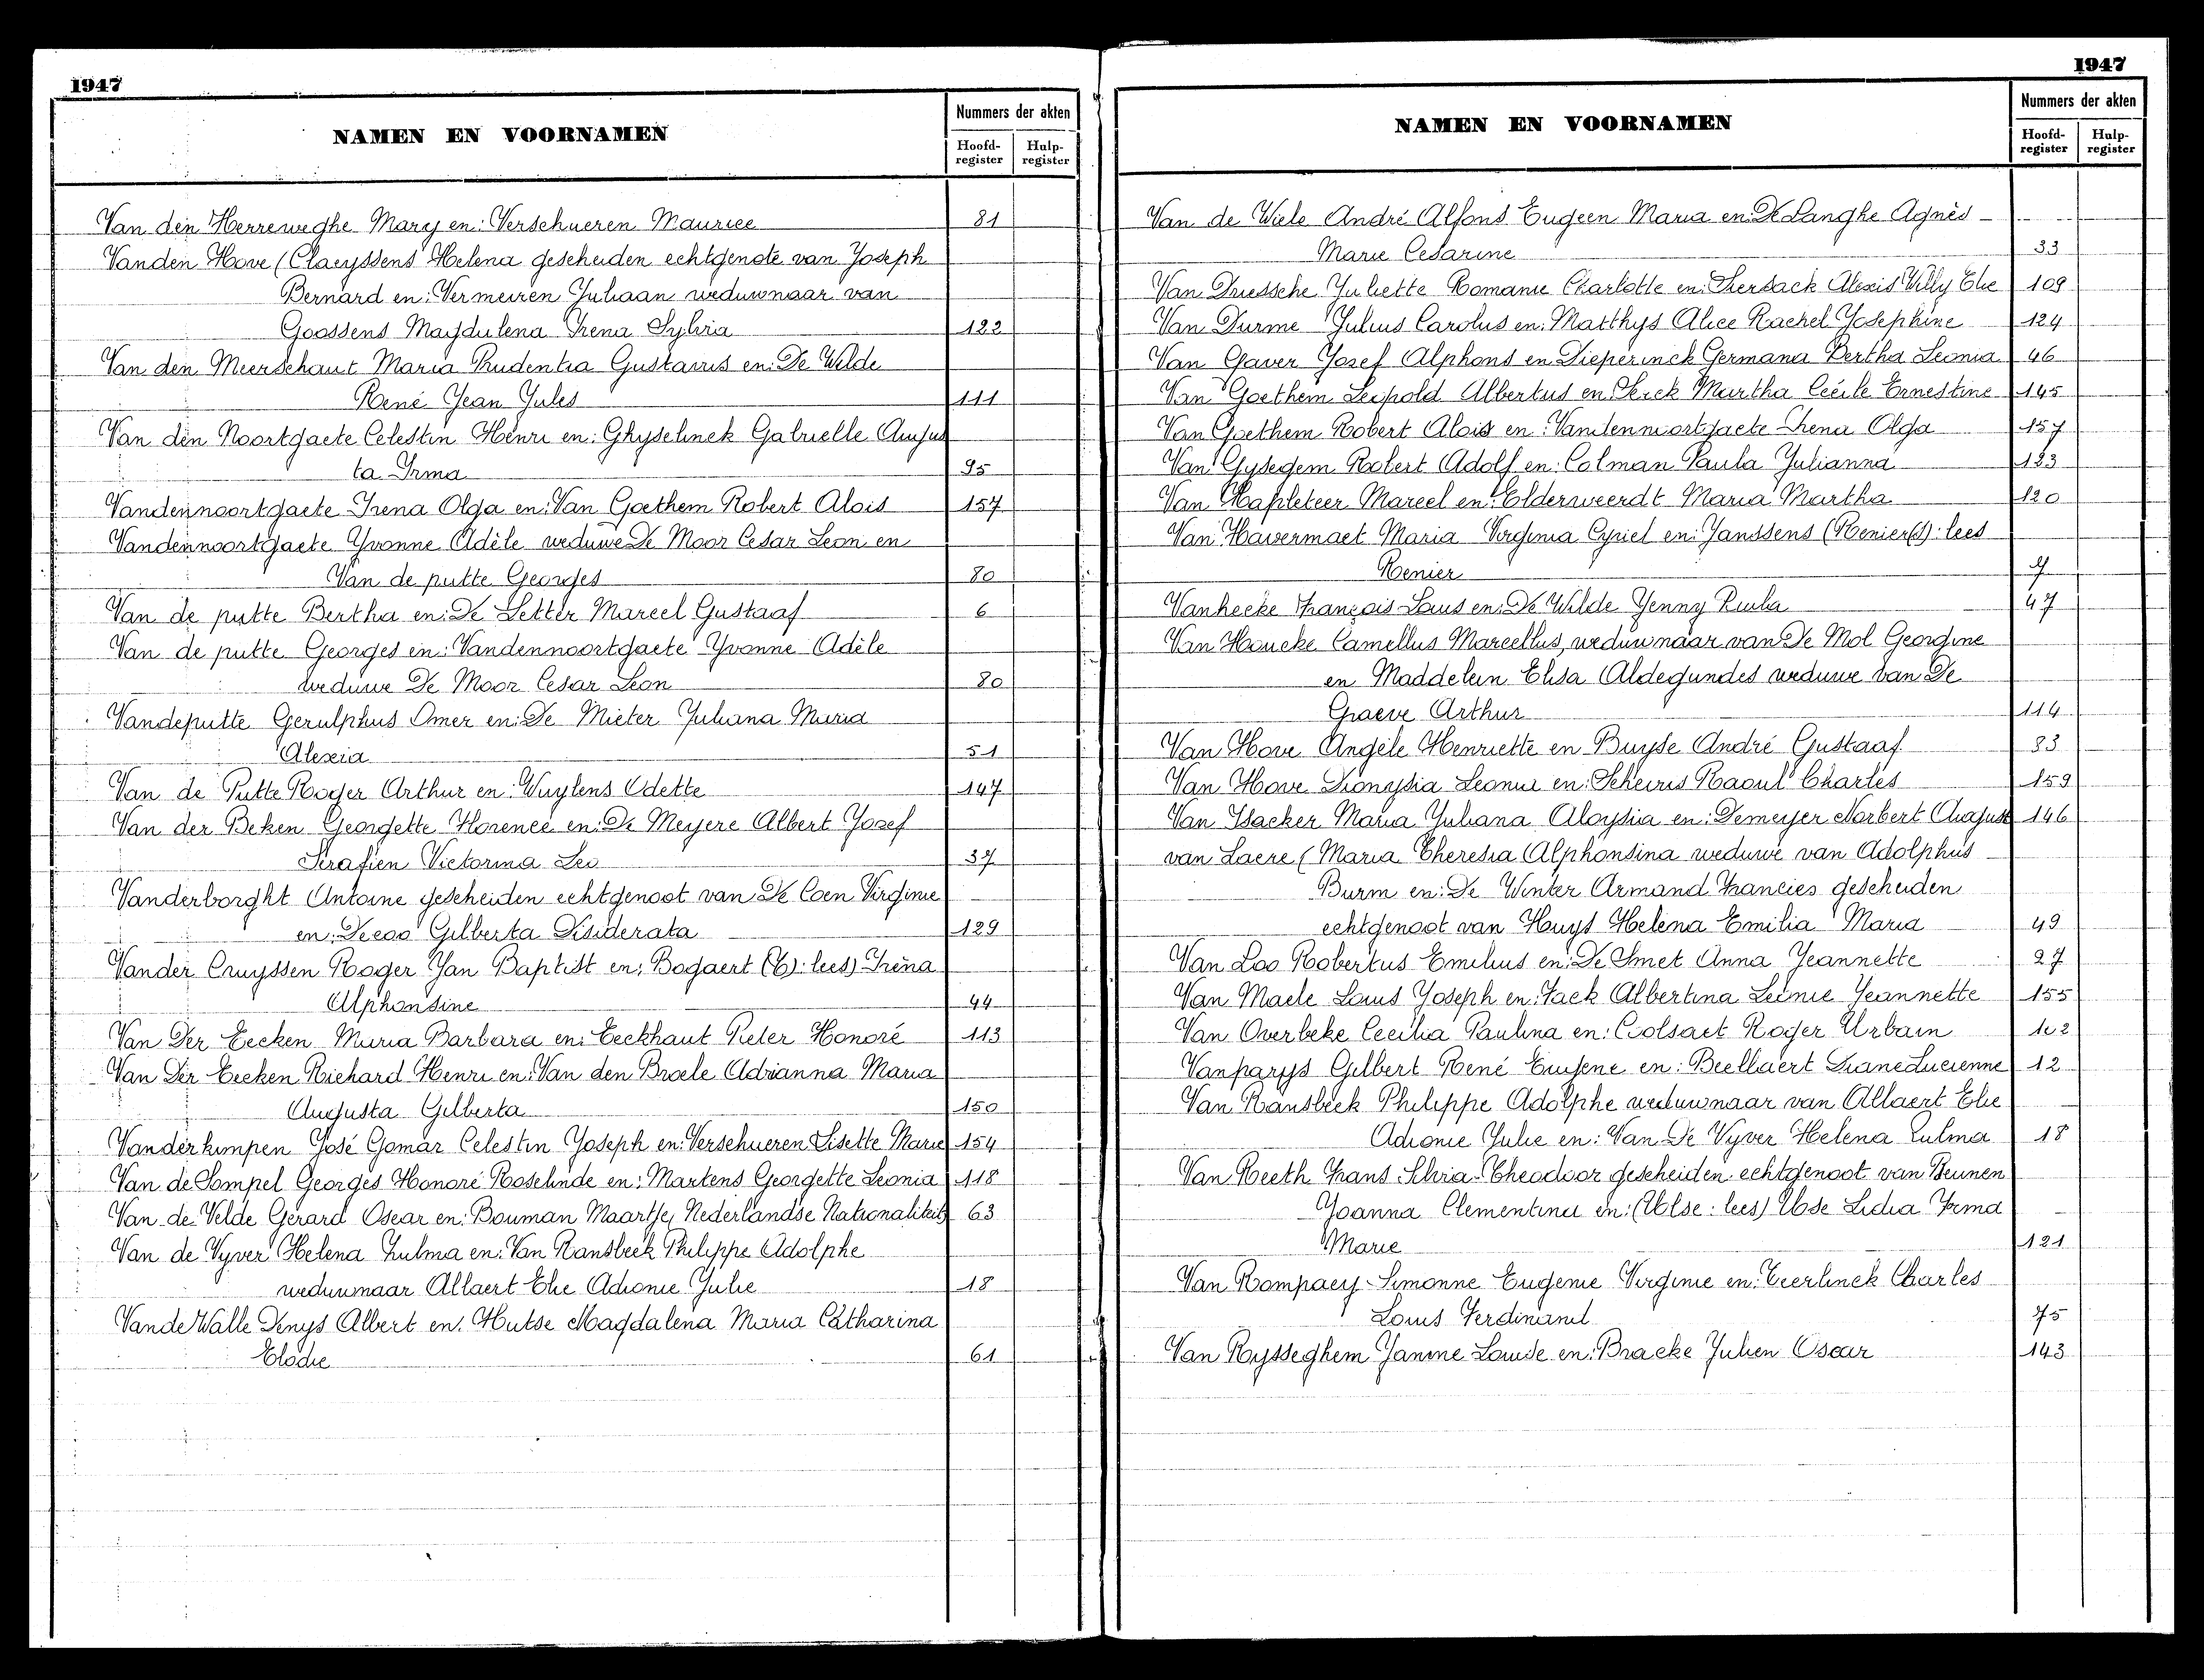 1947
NAMEN EN VOORNAMEN
Nummers der akten
Hoofd-register Hulp-register
Van den Herreweghe Mary en: Verschueren Maurice 81
Vanden Hove (Claeyssens Helena gescheiden echtgenote van Joseph
Bernard en: Vermeiren Juliaan weduwnaar van
Goossens Magdalena Irena Sylvia 122
Van den Meerschaut Maria Prudentia Gustavus en: De Wilde
René Jean Jules 111
Van den Noortgaete Celestin Henri en: Ghyselinck Gabrielle Augus
ta Irma 95
Vandennoortgaete Irena Olga en: Van Goethem Robert Alois 157
Vandennoortgaete Yvonne Adèle weduwe De Moor Cesar Leon en
Van de putte Georges 80
Van de putte Bertha en: De Letter Marcel Gustaaf 6
Van de putte Georges en: Vandennoortgaete Yvonne Adèle
weduwe De Moor Cesar Leon 80
Vandeputte Gerulphus Omer en: De Mieter Juliana Maria
Alexia 51
Van de Putte Roger Arthur en: Wuytens Odette 147
Van der Beken Georgette Florence en: De Meyere Albert Jozef
Serafien Victorina Leo 37
Vanderborght Antoine gescheiden echtgenoot van De Coen Virginie
en: Decoo Gilberta Desiderata 129
Vander Cruyssen Roger Jan Baptist en: Bogaert (B): lees) Irena
Alphonsine 44
Van Der Eecken Maria Barbara en: Eeckhaut Pieter Honoré 113
Van Der Eecken Richard Henri en: Van den Broele Adrianna Maria
Augusta Gilberta 150
Vanderkimpen José Gomar Celestin Joseph en: Verschueren Lisette Marie 154
Van de Sompel Georges Honoré Roselinde en: Martens Georgette Leonia 118
Van de Velde Gerard Oscar en: Bouman Maartje, Nederlandse Nationaliteit 63
Van de Vyver Helena Zulma en: Van Ransbeek Philippe Adolphe
weduwnaar Allaert Elie Adronie Julie 18
Vande Walle Denys Albert en: Hutse Magdalena Maria Catharina
Elodie 61
1947
NAMEN EN VOORNAMEN
Nummers der akten
Hoofd-register Hulp-register
Van de Wiele André Alfons Eugeen Maria en: De Langhe Agnès
Marie Cesarine 33
Van Driessche Juliette Romanie Charlotte en: Piersack Alexis Willy Elie 109
Van Durme Julius Carolus en: Matthys Alice Rachel Josephine 124
Van Gaver Jozef Alphons en Dieperinck Germana Bertha Leonia 46
Van Goethem Leopold Albertus en: Serck Martha Cécile Ernestine 145
Van Goethem Robert Alois en: Vandennoortgaete Irena Olga 157
Van Gysegem Robert Adolf en: Colman Paula Julianna 123
Van Hapleteer Marcel en: Elderweerdt Maria Martha 120
Van Havermaet Maria Virginia Cyriel en: Janssens (Renier(s): lees
Renier 7
Vanhecke François Louis en: De Wilde Jenny Paula 47
Van Houcke Camillus Marcellus, weduwnaar van De Mol Georgine
en Maddelein Elisa Aldegundes weduwe van De
Graeve Arthur 114
Van Hove Angèle Henriette en Buyse André Gustaaf 83
Van Hove Dionysia Leonie en: Scheiris Raoul Charles 159
Van Isacker Maria Juliana Aloysia en: Demeyer Norbert August 146
van Laere (Maria Theresia Alphonsina weduwe van Adolphus
Burm en: De Winter Armand Francies gescheiden
echtgenoot van Huys Helena Emilia Maria 49
Van Loo Robertus Emilius en: De Smet Anna Jeannette 27
Van Maele Louis Joseph en: Tack Albertina Leonie Jeannette 155
Van Overbeke Cecilia Paulina en: Coolsaet Roger Urbain 102
Vanparys Gilbert René Eugene en: Beellaert Diane Lucienne 12
Van Ransbeek Philippe Adolphe weduwnaar van Allaert Elie
Adronie Julie en: Van De Vyver Helena Zulma 18
Van Reeth Frans Silvia Theodoor gescheiden echtgenoot van Beunen
Joanna Clementina en: (Ulse: lees) Ulse Lidia Irma
Marie 121
Van Rompaey Simonne Eugenie Virginie en: Eeerlinck Charles
Louis Ferdinand 75
Van Rysseghem Janine Louise en: Bracke Julien Oscar 143